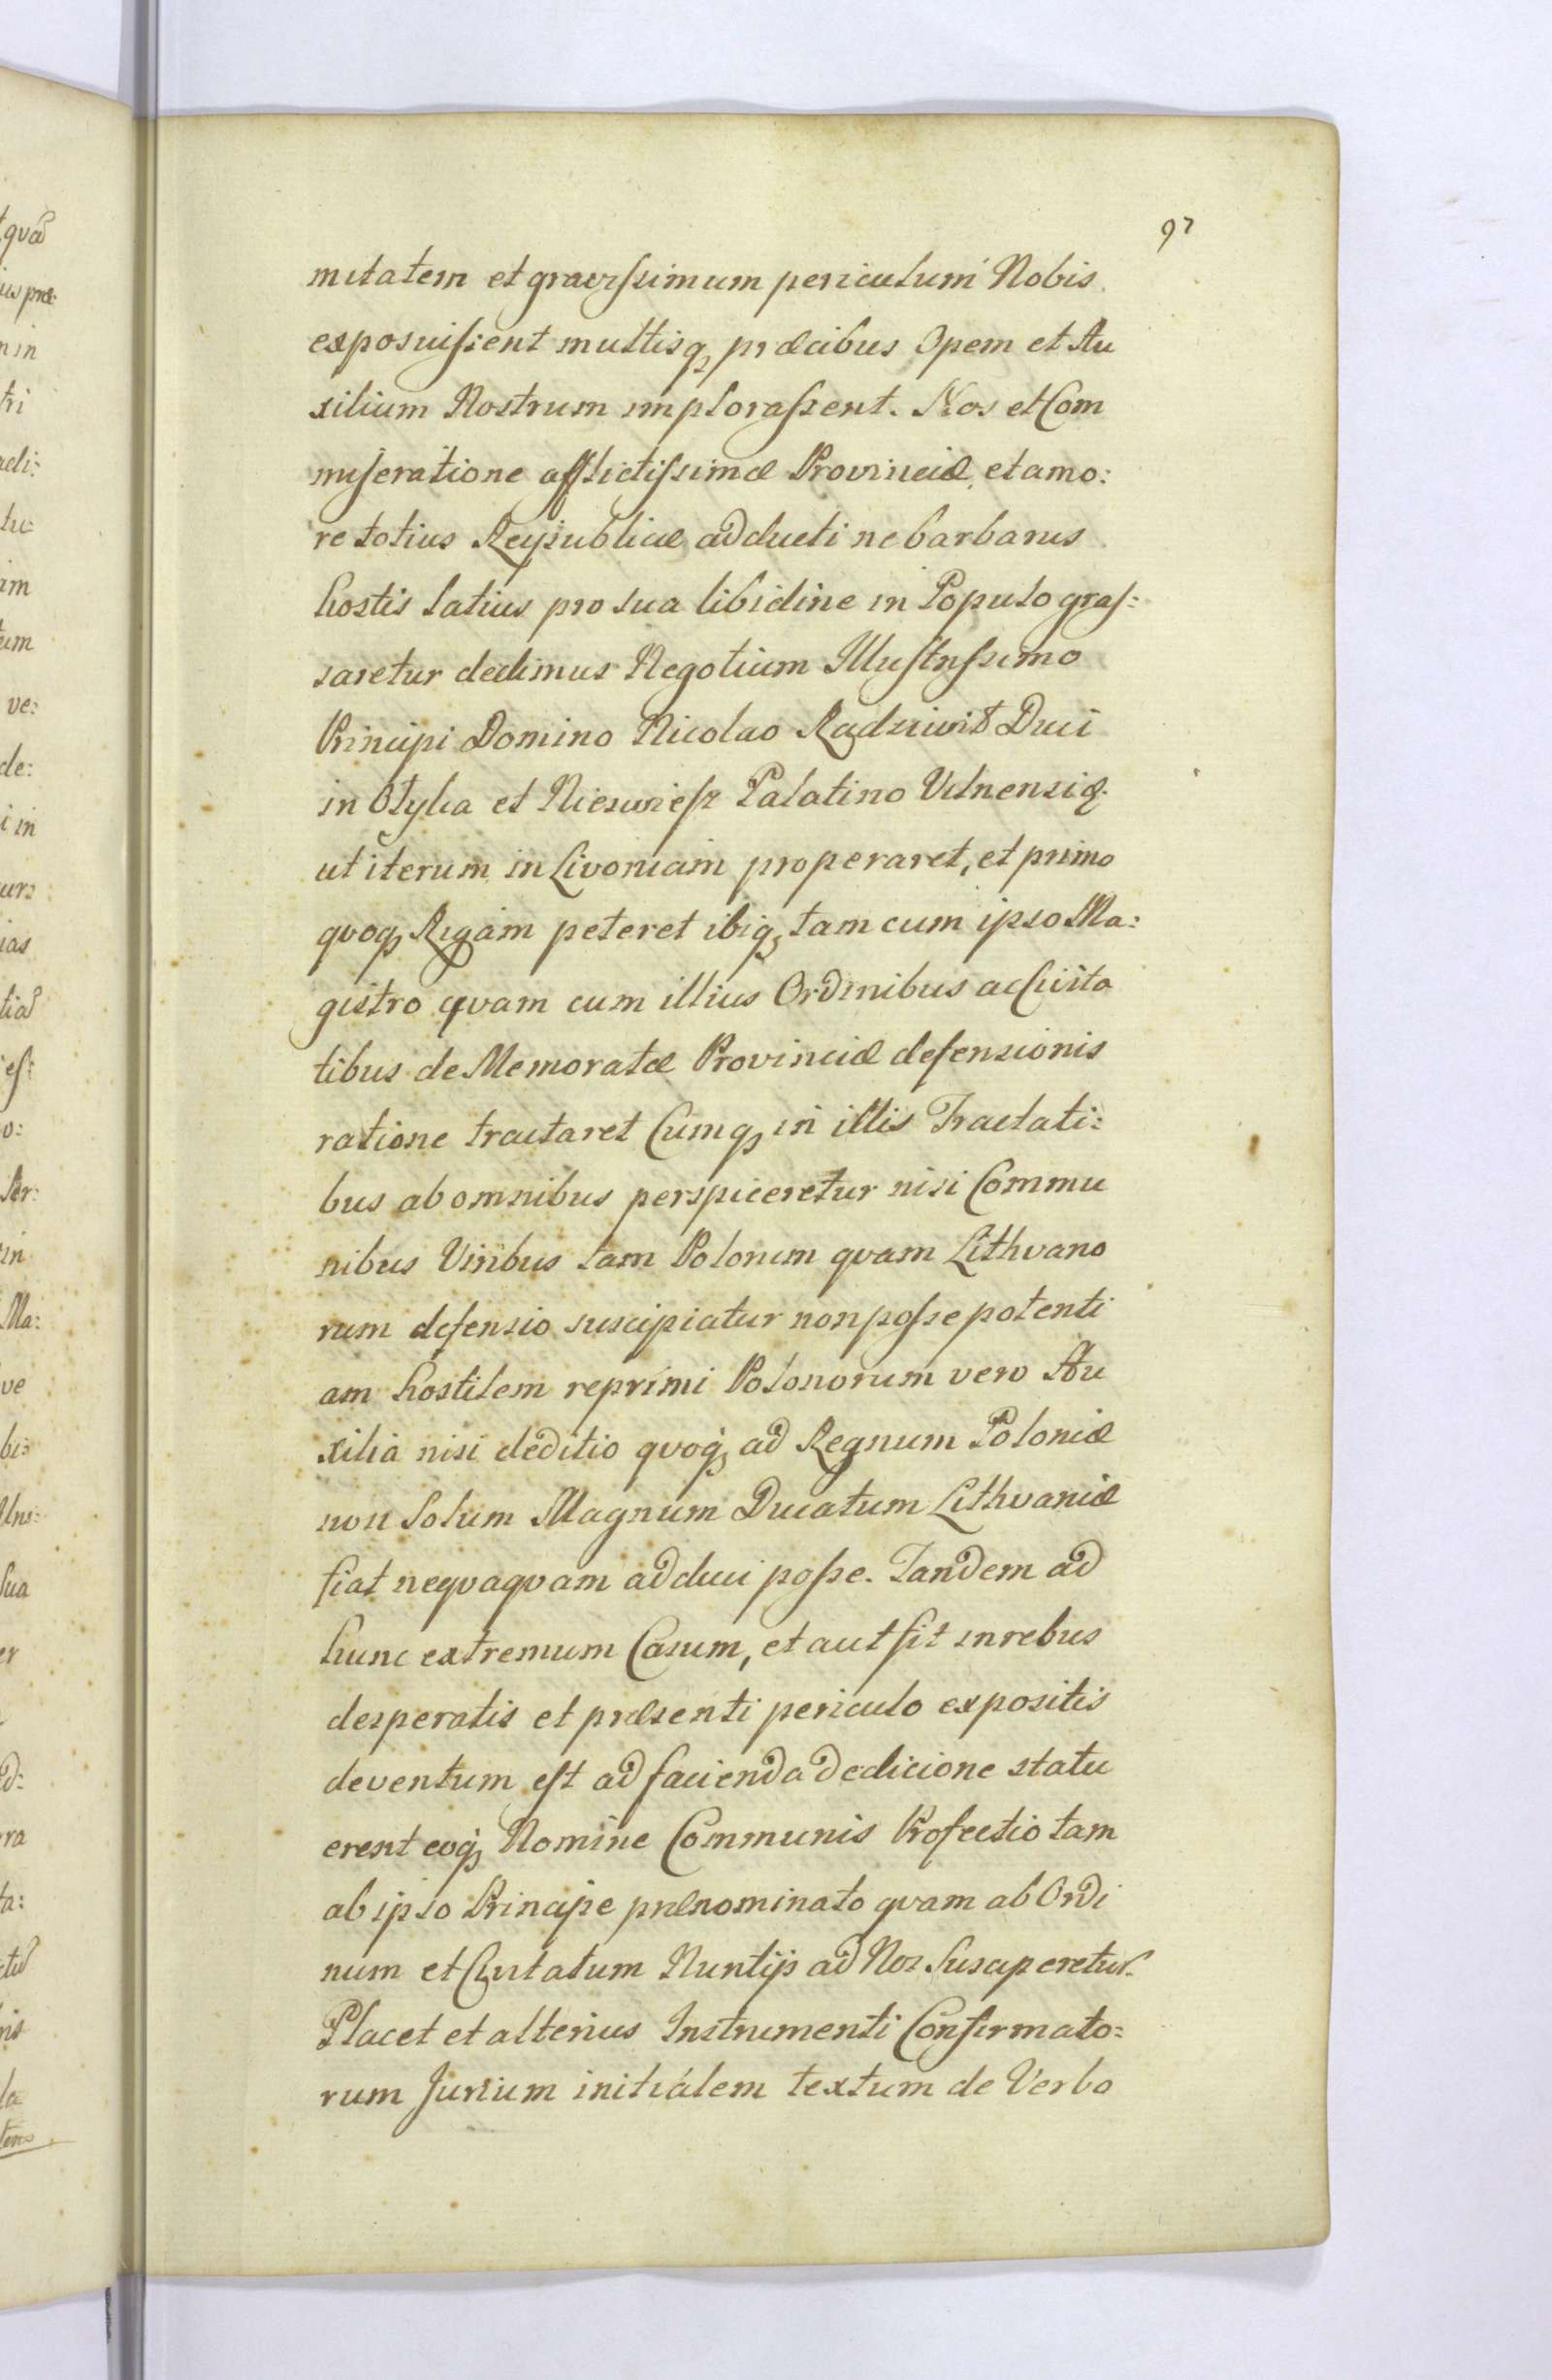 97
mitatem et gravissimum periculum Nobis
exposuissent multisq, præcibus Opem et Au
xilium Nostrum implorassent. Nos et Com
miseratione afflictissimæ Provinciæ et amo:
re totius Reipublicæ adducti ne barbarus
hostis latius pro sua libidine in Populo gras:
saretur dedimus Negotium Illustrissimo
Principi Domino Nicolao Radziwił Duci
in Olyka et Nieswiesz Palatino Vilnensiq.
ut iterum in Livoniam properaret, et primo
quoq, Rigam peteret ibiq, tam cum ipso Ma:
gistro quam cum illius Ordinibus ac Civita
tibus de Memoratæ Provinciæ defensionis
ratione tractaret Cumq, in illis Tractati:
bus ab omnibus perspiceretur nisi Commu
nibus Viribus tam Polonum quam Lithvano
rum defensio suscipiatur non posse potenti
am hostilem reprimi Polonorum vero Au
xilia nisi deditio quoq, ad Regnum Poloniæ
non Solum Magnum Ducatum Lithvaniæ
fiat nequaquam adduci posse. Tandem ad
hunc extremum Casum, et aut fit in rebus
desperatis et præsenti periculo expositis
deventum est ad facienda dedicione statu
erent eoq, Nomine Communis Profectio tam
ab ipso Principe prænominato quam ab Ordi
num et Civitatum Nuntijs ad Nos Susciperetur.
Placet et alterius Instrumenti Confirmato:
rum Jurium initialem textum de Verbo
quã
præ
in
tri
adi:
tu:
im
um
ve:
de:
i in
urs
ias
tiã
est
o:
in
Ma:
ve
bis
Sua
er
d:
ra
ta:
la